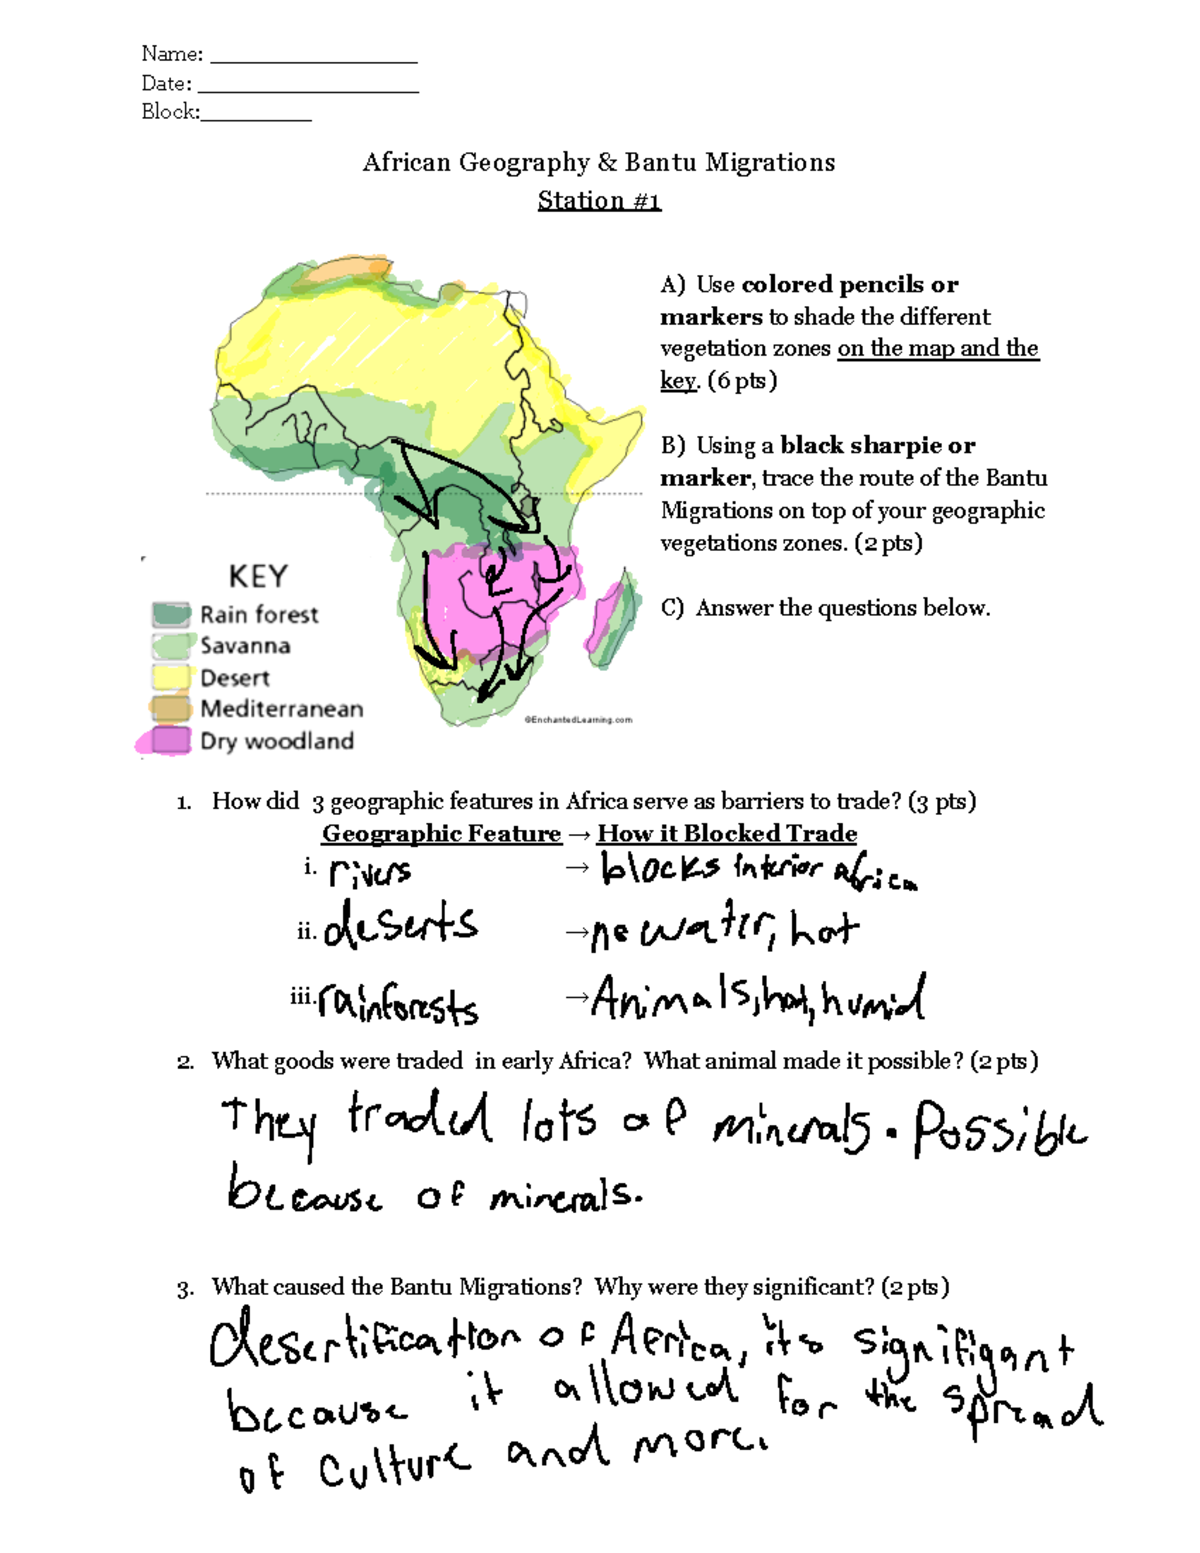 Name: ___________________
Date: ____________________
Block:__________
African Geography & Bantu Migrations
Station #1
A) Use colored pencils or
markers to shade the different
vegetation zones on the map and the
key. (6 pts)
B) Using a black sharpie or
marker, trace the route of the Bantu
Migrations on top of your geographic
vegetations zones. (2 pts)
C) Answer the questions below.
KEY
Rain forest
Savanna
Desert
Mediterranean
Dry woodland
©EnchantedLearning.com
1. How did 3 geographic features in Africa serve as barriers to trade? (3 pts)
Geographic Feature → How it Blocked Trade
i. rivers → blocks interior africa
ii. deserts → no water, hot
iii. rainforests → Animals, hot, humid
2. What goods were traded in early Africa? What animal made it possible? (2 pts)
They traded lots of minerals. Possible
because of minerals.
3. What caused the Bantu Migrations? Why were they significant? (2 pts)
desertification of Africa, its signifigant
because it allowed for the spread
of culture and more.